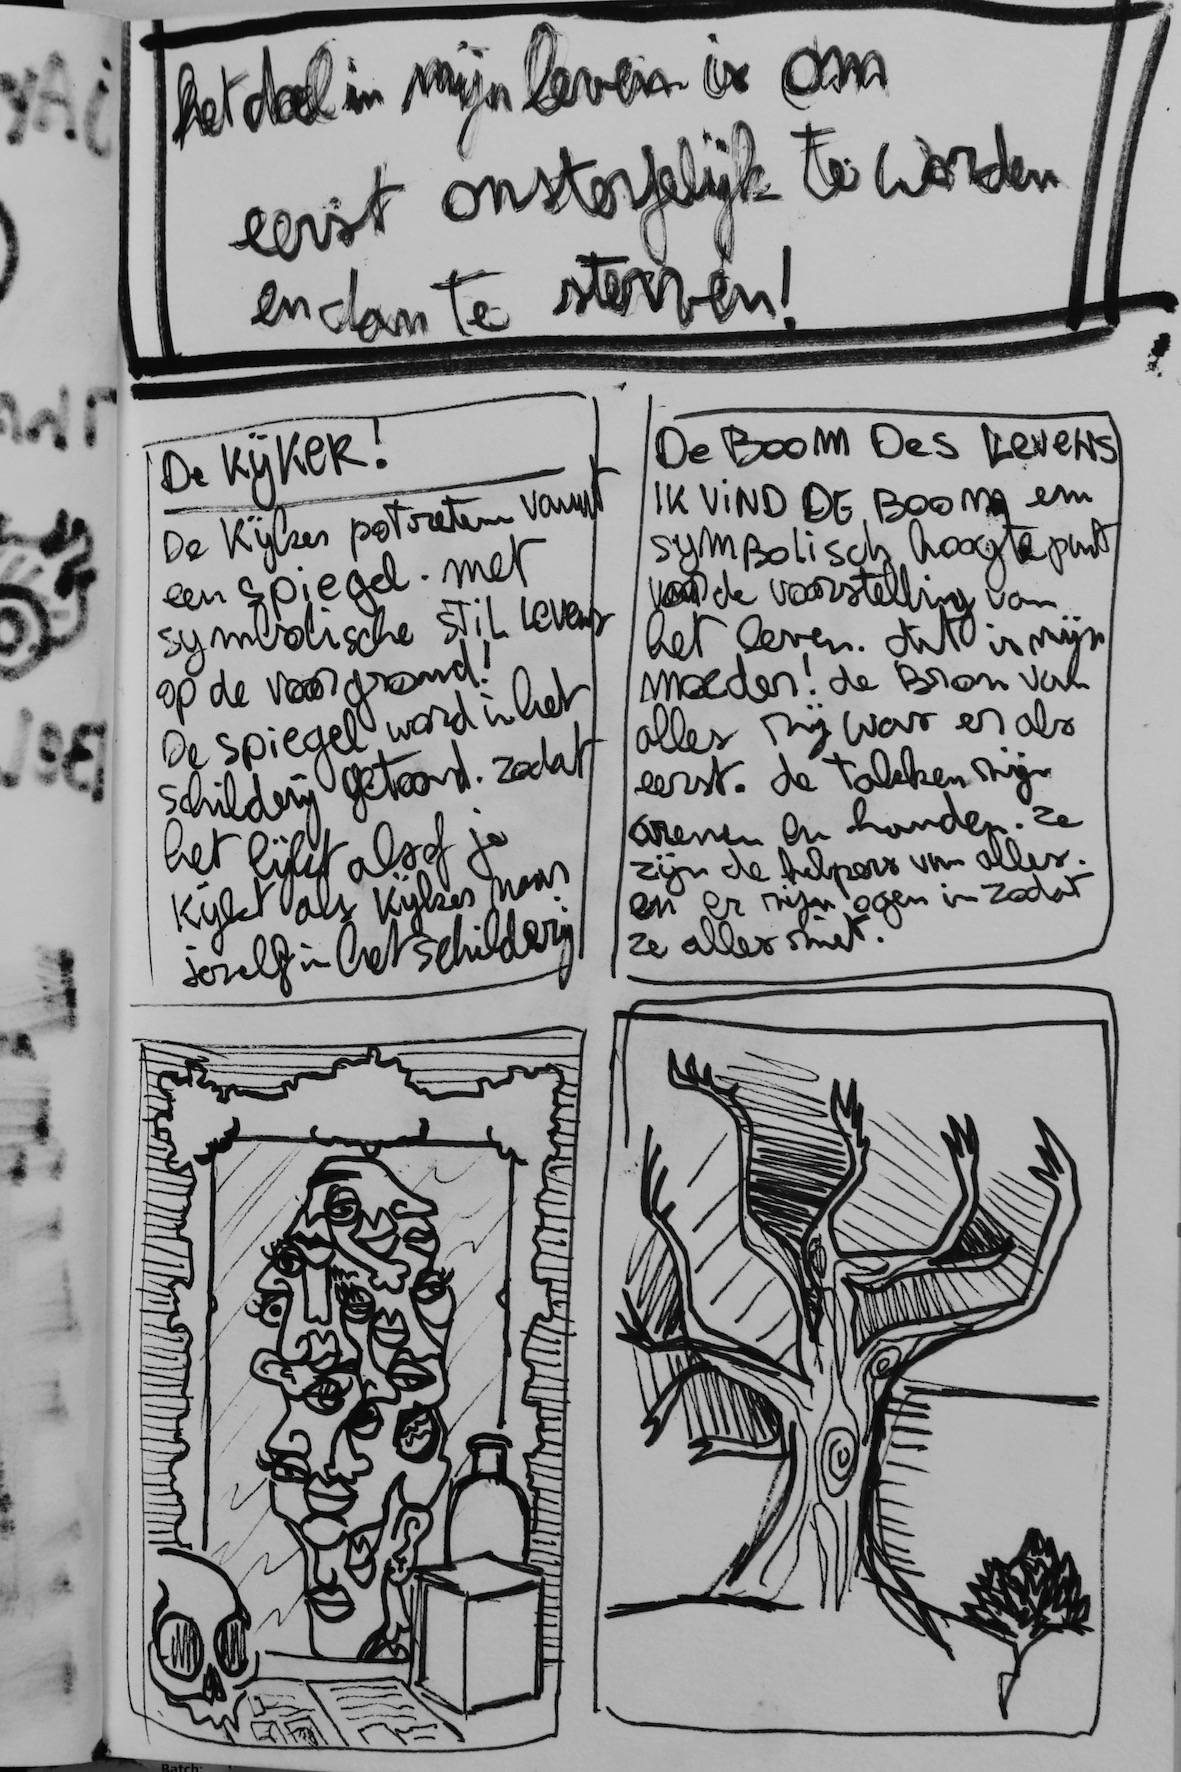 het doel in mijn leven is om
eerst onsterfelijk te worden
en dan te sterven!
De KijKER!
De Kijker potretem vanuit
een spiegel. met
symbolische STiL Levens
op de voorgrond!
De spiegel word in het
schilderij getoond. zodat
het lijkt alsof je
Kijkt als Kijker naar
jezelf in het schilderij
De BOOM Des LevENS
IK ViND DE BOOM een
SYMBOLiSch hoogtepunt
voor de voorstelling van
het leven. dit is mijn
moeder! de Bron van
alles zij was er als
eerst. de takken zijn
armen en handen. ze
zijn de helpers van alles.
en er zijn ogen in zodat
ze alles ziet.
Batch: